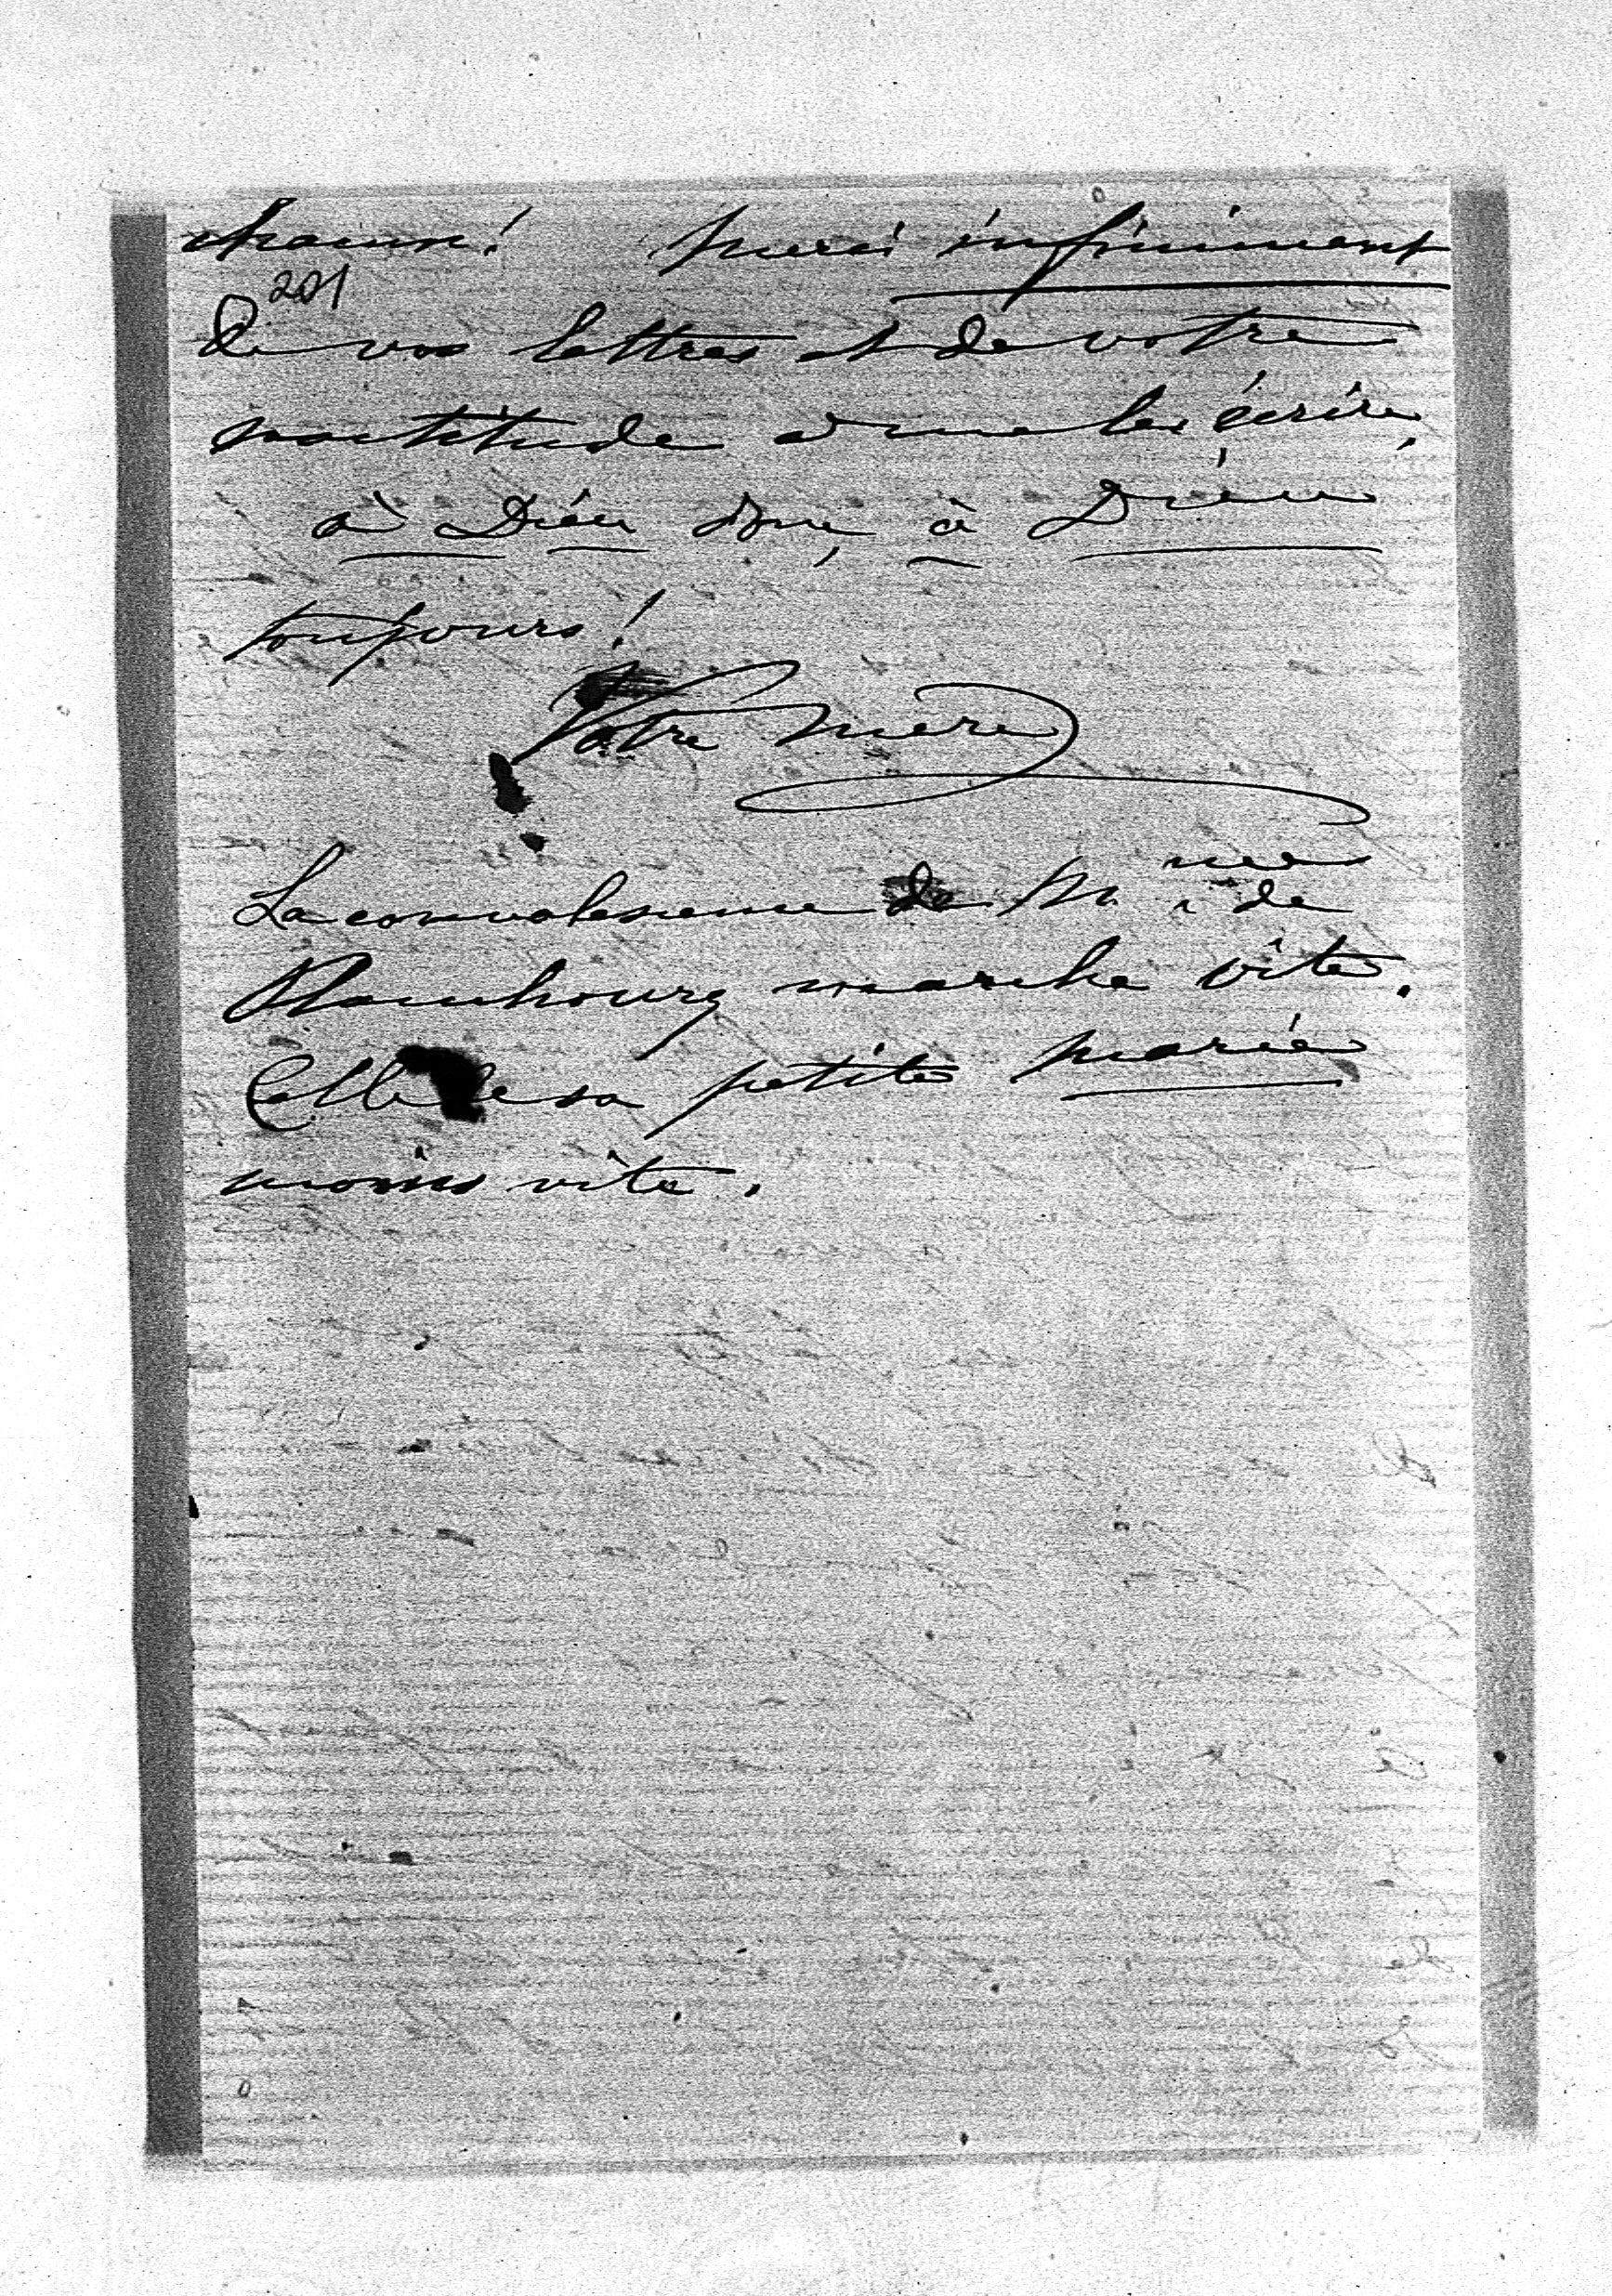 chacune! Merci infiniment
201
de vos lettres et de votre
exactitude à me les écrire,
à Dieu donc, à Dieu
toujours!
Votre mère
La convalescence de Mme de
marche vite.
Celle de sa petite Marie
moins vite.